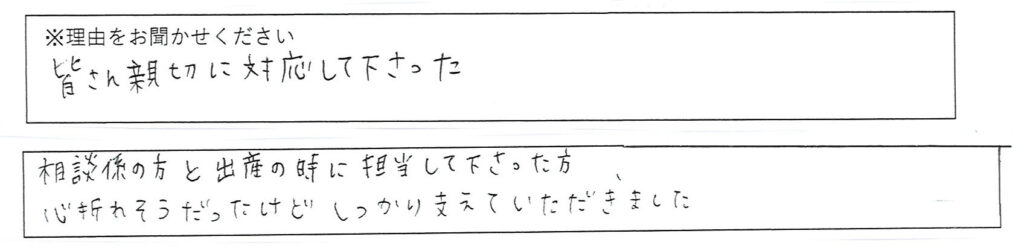 ※理由をお聞かせください
皆さん親切に対応して下さった
相談係の方と出産の時に担当して下さった方、
心折れそうだったけどしっかり支えていただきました